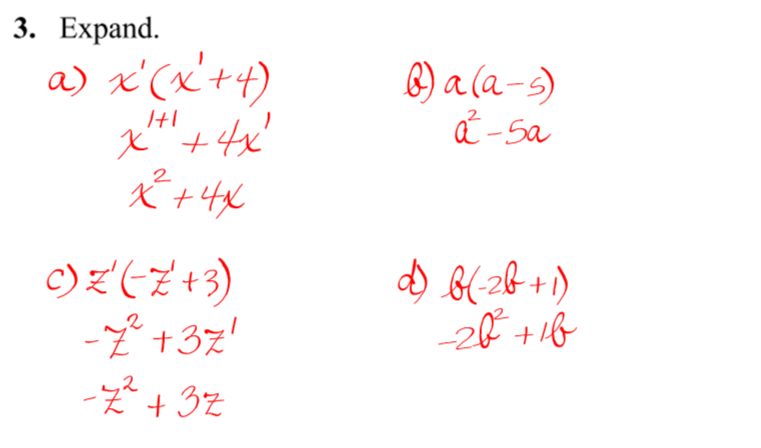 3. Expand.
a) x¹(x¹+4)
x¹⁺¹ + 4x¹
x² + 4x
b) a(a-5)
a² - 5a
c) z¹(-z¹+3)
-z² + 3z¹
-z² + 3z
d) b(-2b+1)
-2b² + 1b